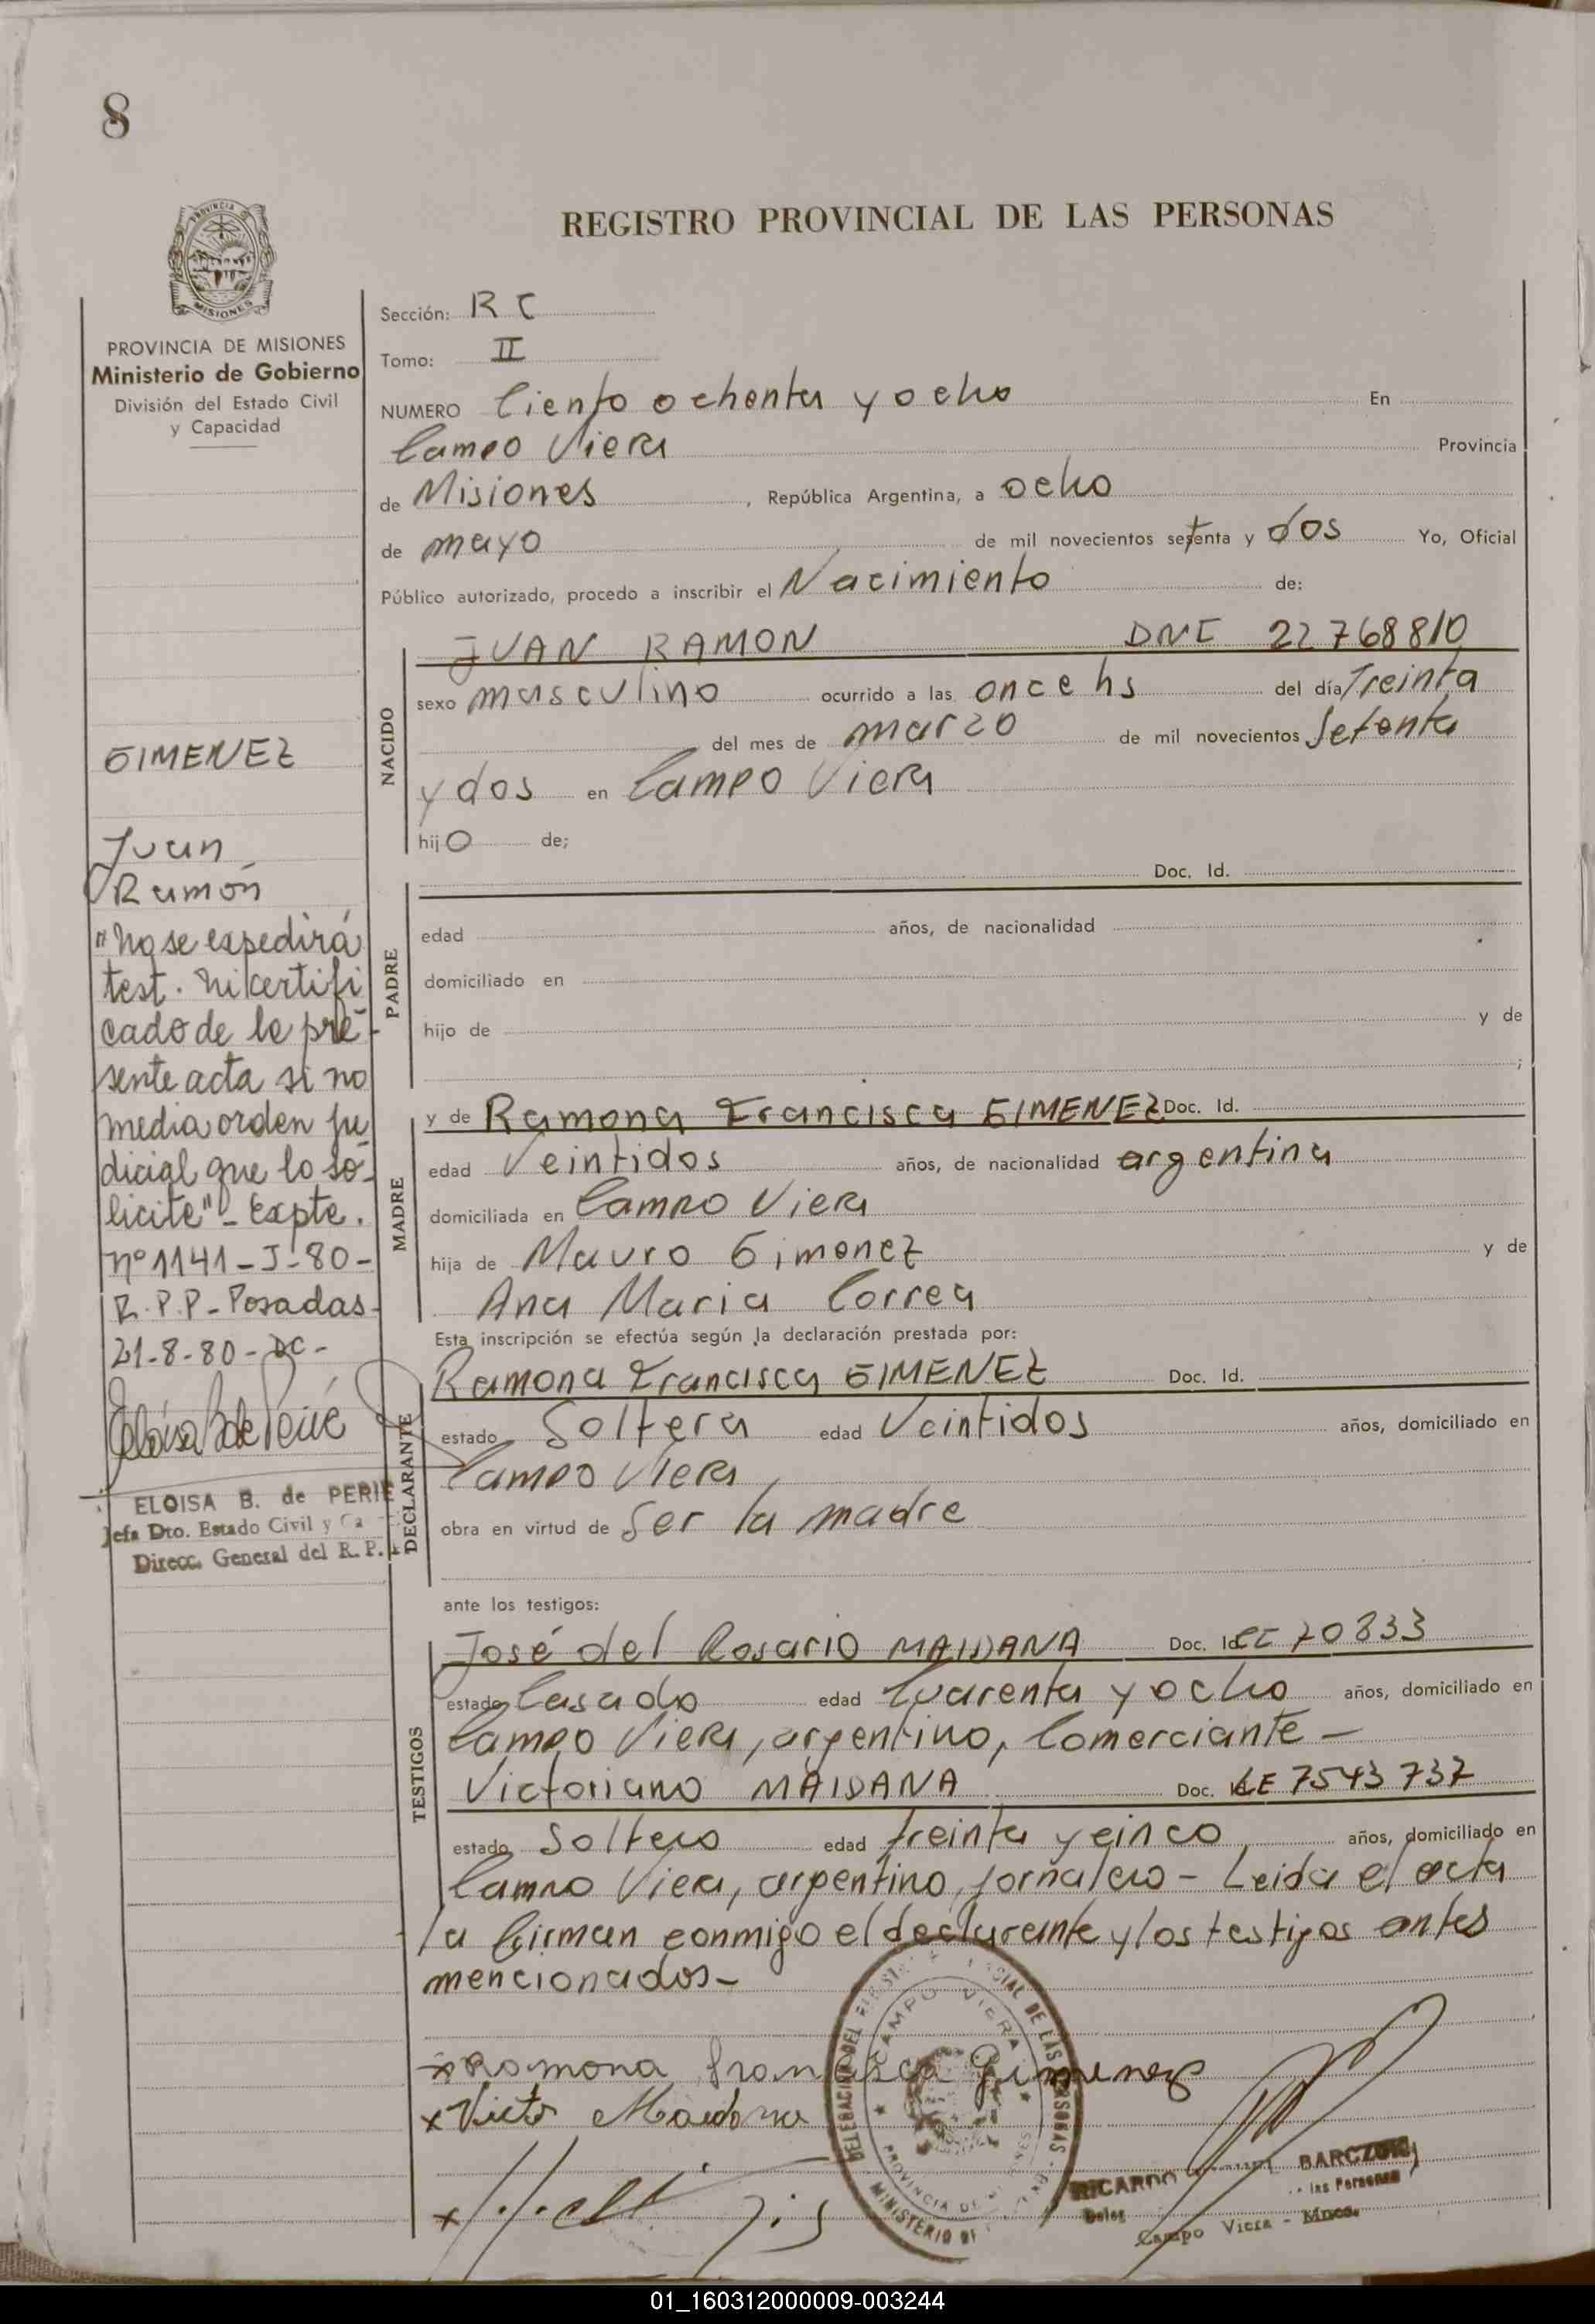 8
PROVINCIA DE
MISIONES
REGISTRO PROVINCIAL DE LAS PERSONAS
PROVINCIA DE MISIONES
Ministerio de Gobierno
División del Estado Civil
y Capacidad
GIMENEZ
Juan
Ramón
"No se expedirá
test. ni certifi
cado de la pre-
sente acta si no
media orden ju
dicial que lo so-
licite" - Expte.
nº 1141 - J - 80 -
R.P.P - Posadas -
21-8-80 - DC -
ELOISA B. de PERIE
Jefa Dto. Estado Civil y Ca
Direcc. General del R. P.
Sección: R C
Tomo: II
NUMERO Ciento ochenta y ocho En
Campo Viera Provincia
de Misiones, República Argentina, a ocho
de mayo de mil novecientos setenta y dos Yo, Oficial
Público autorizado, procedo a inscribir el Nacimiento de:
NACIDO
JUAN RAMON DNI 22768810
sexo masculino ocurrido a las once hs del día Treinta
del mes de marzo de mil novecientos Setenta
y dos en Campo Viera
hijo de;
PADRE
Doc. Id.
edad años, de nacionalidad
domiciliado en
hijo de y de
;
MADRE
y de Ramona Francisca GIMENEZ Doc. Id.
edad Veintidos años, de nacionalidad argentina
domiciliada en Campo Viera
hija de Mauro Gimenez y de
Ana Maria Correa
Esta inscripción se efectúa según la declaración prestada por:
DECLARANTE
Ramona Francisca GIMENEZ Doc. Id.
estado Soltera edad Veintidos años, domiciliado en
Campo Viera
obra en virtud de Ser la madre
ante los testigos:
TESTIGOS
José del Rosario MAIDANA Doc. Id. CI 70833
estado Casado edad Cuarenta y ocho años, domiciliado en
Campo Viera, argentino, Comerciante -
Victoriano MAIDANA Doc. LE 7543737
estado Soltero edad treinta y cinco años, domiciliado en
Campo Viera, argentino, jornalero - Leida el acta
la firman conmigo el declarante y los testigos antes
mencionados -
x Ramona Francisca Gimenez
x Victo Maidana
x
DELEGACION DEL REGISTRO PROVINCIAL DE LAS PERSONAS
CAMPO VIERA
PROVINCIA DE MISIONES
MINISTERIO DE
RICARDO BARCZUK
Deleg las Personas
Campo Viera - Mnes.
01_160312000009-003244